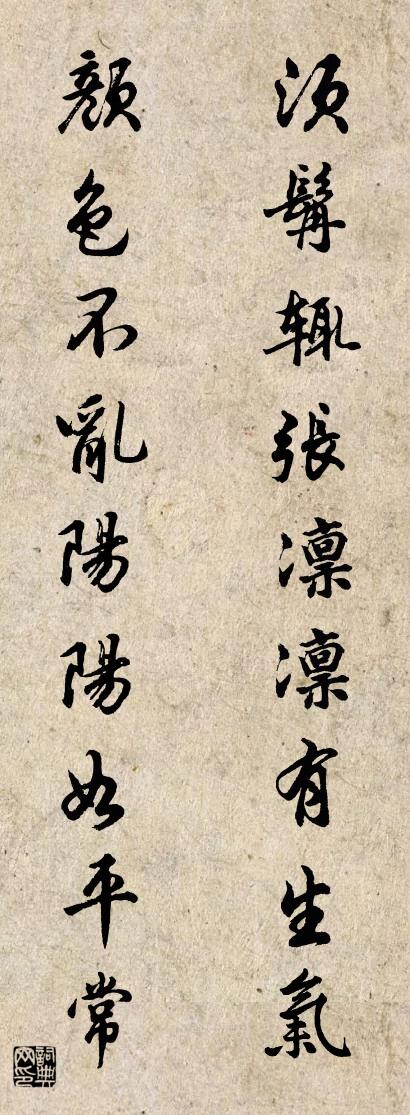 須髯辄張凛凛有生氣
顏色不亂陽陽如平常
詞典网印